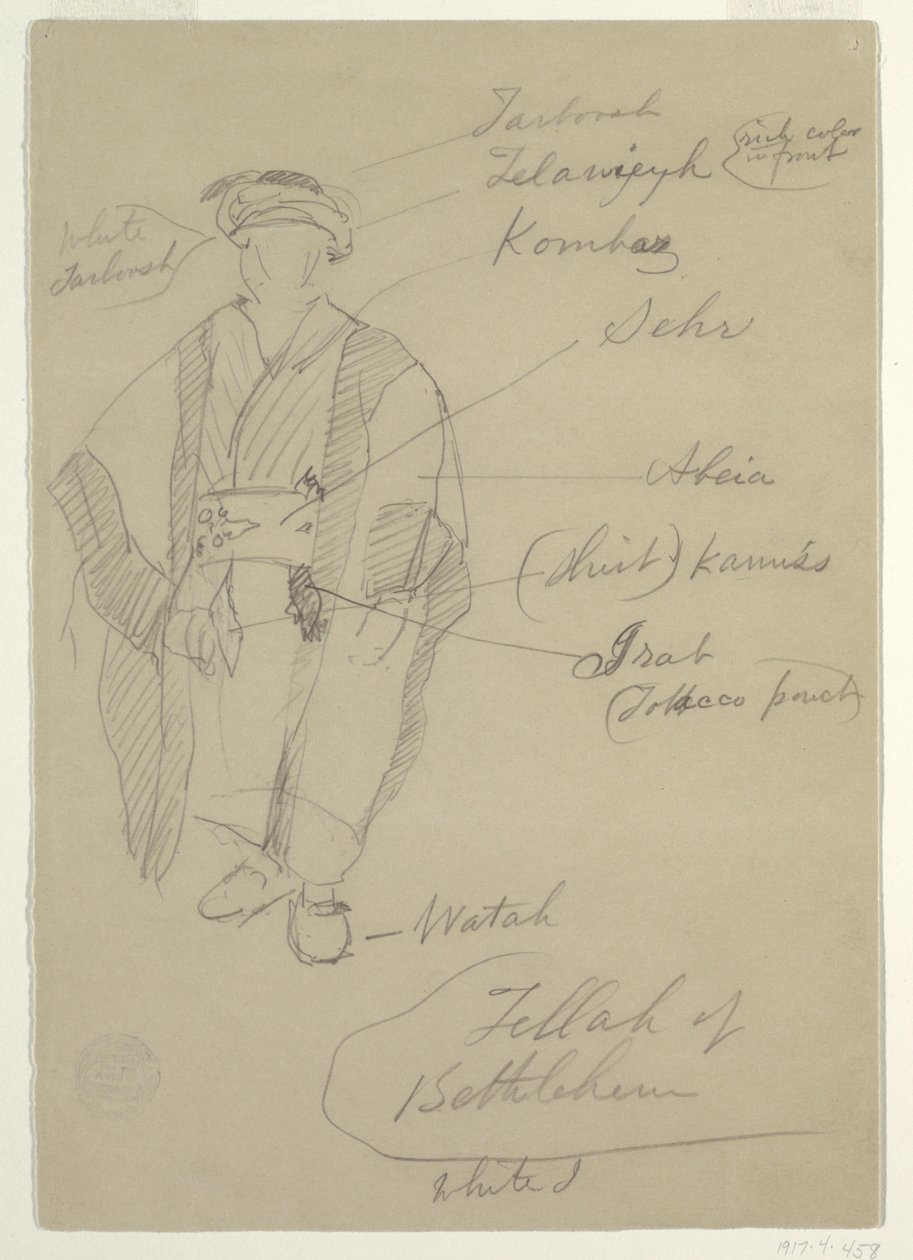 Tarboosh
Telawiyeyh
(rich color
in front
Kombaz
White
Tarboosh
Sehr
Abeia
(Shirt) Kamiss
Grab
(Tobacco pouch)
Watah
Fellah of
Bethlehem
White
1917.4.458